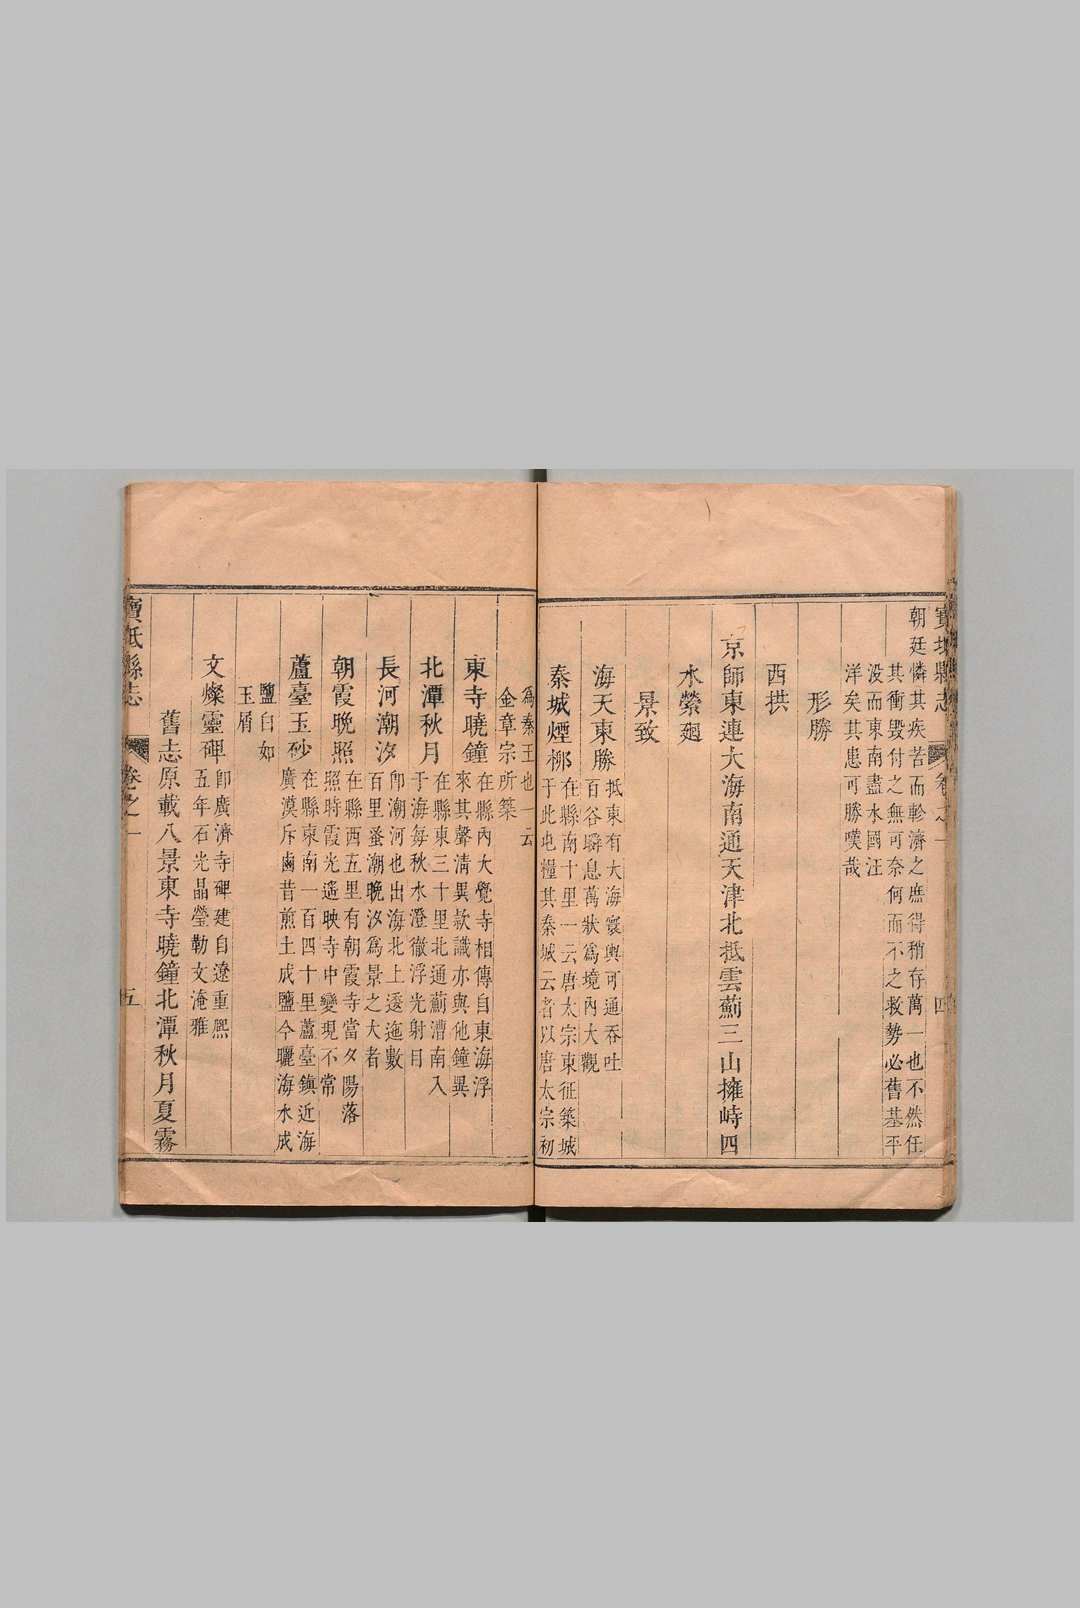 寶坻縣志
卷之一
四
朝廷憐其疾苦而軫濟之庶得稍存萬一也不然任
其衝毀付之無可奈何而不之救勢必舊基平
没而東南盡水國汪
洋矣其患可勝嘆哉
形勝
西拱
京師東連大海南通天津北抵雲薊三山擁峙四
水縈廻
景致
海天東勝
抵東有大海寰輿可通吞吐
百谷瞬息萬狀爲境內大觀
秦城煙柳
在縣南十里一云唐太宗東征築城
于此屯糧其秦城云者以唐太宗初
爲秦王也一云
金章宗所築
東寺曉鐘
在縣內大覺寺相傳自東海浮
來其聲清異款識亦與他鐘異
北潭秋月
在縣東三十里北通薊漕南入
于海每秋水澄徹浮光射目
長河潮汐
卽潮河也出海北上逶迤數
百里蚤潮晚汐爲景之大者
朝霞晚照
在縣西五里有朝霞寺當夕陽落
照時霞光遙映寺中變現不常
蘆臺玉砂
在縣東南一百四十里蘆臺鎮近海
廣漠斥鹵昔煎土成鹽今曬海水成
鹽白如
玉屑
文燦靈碑
卽廣濟寺碑建自遼重熙
五年石光晶瑩勒文淹雅
舊志原載八景東寺曉鐘北潭秋月夏霧
寶坻縣志
卷之一
五